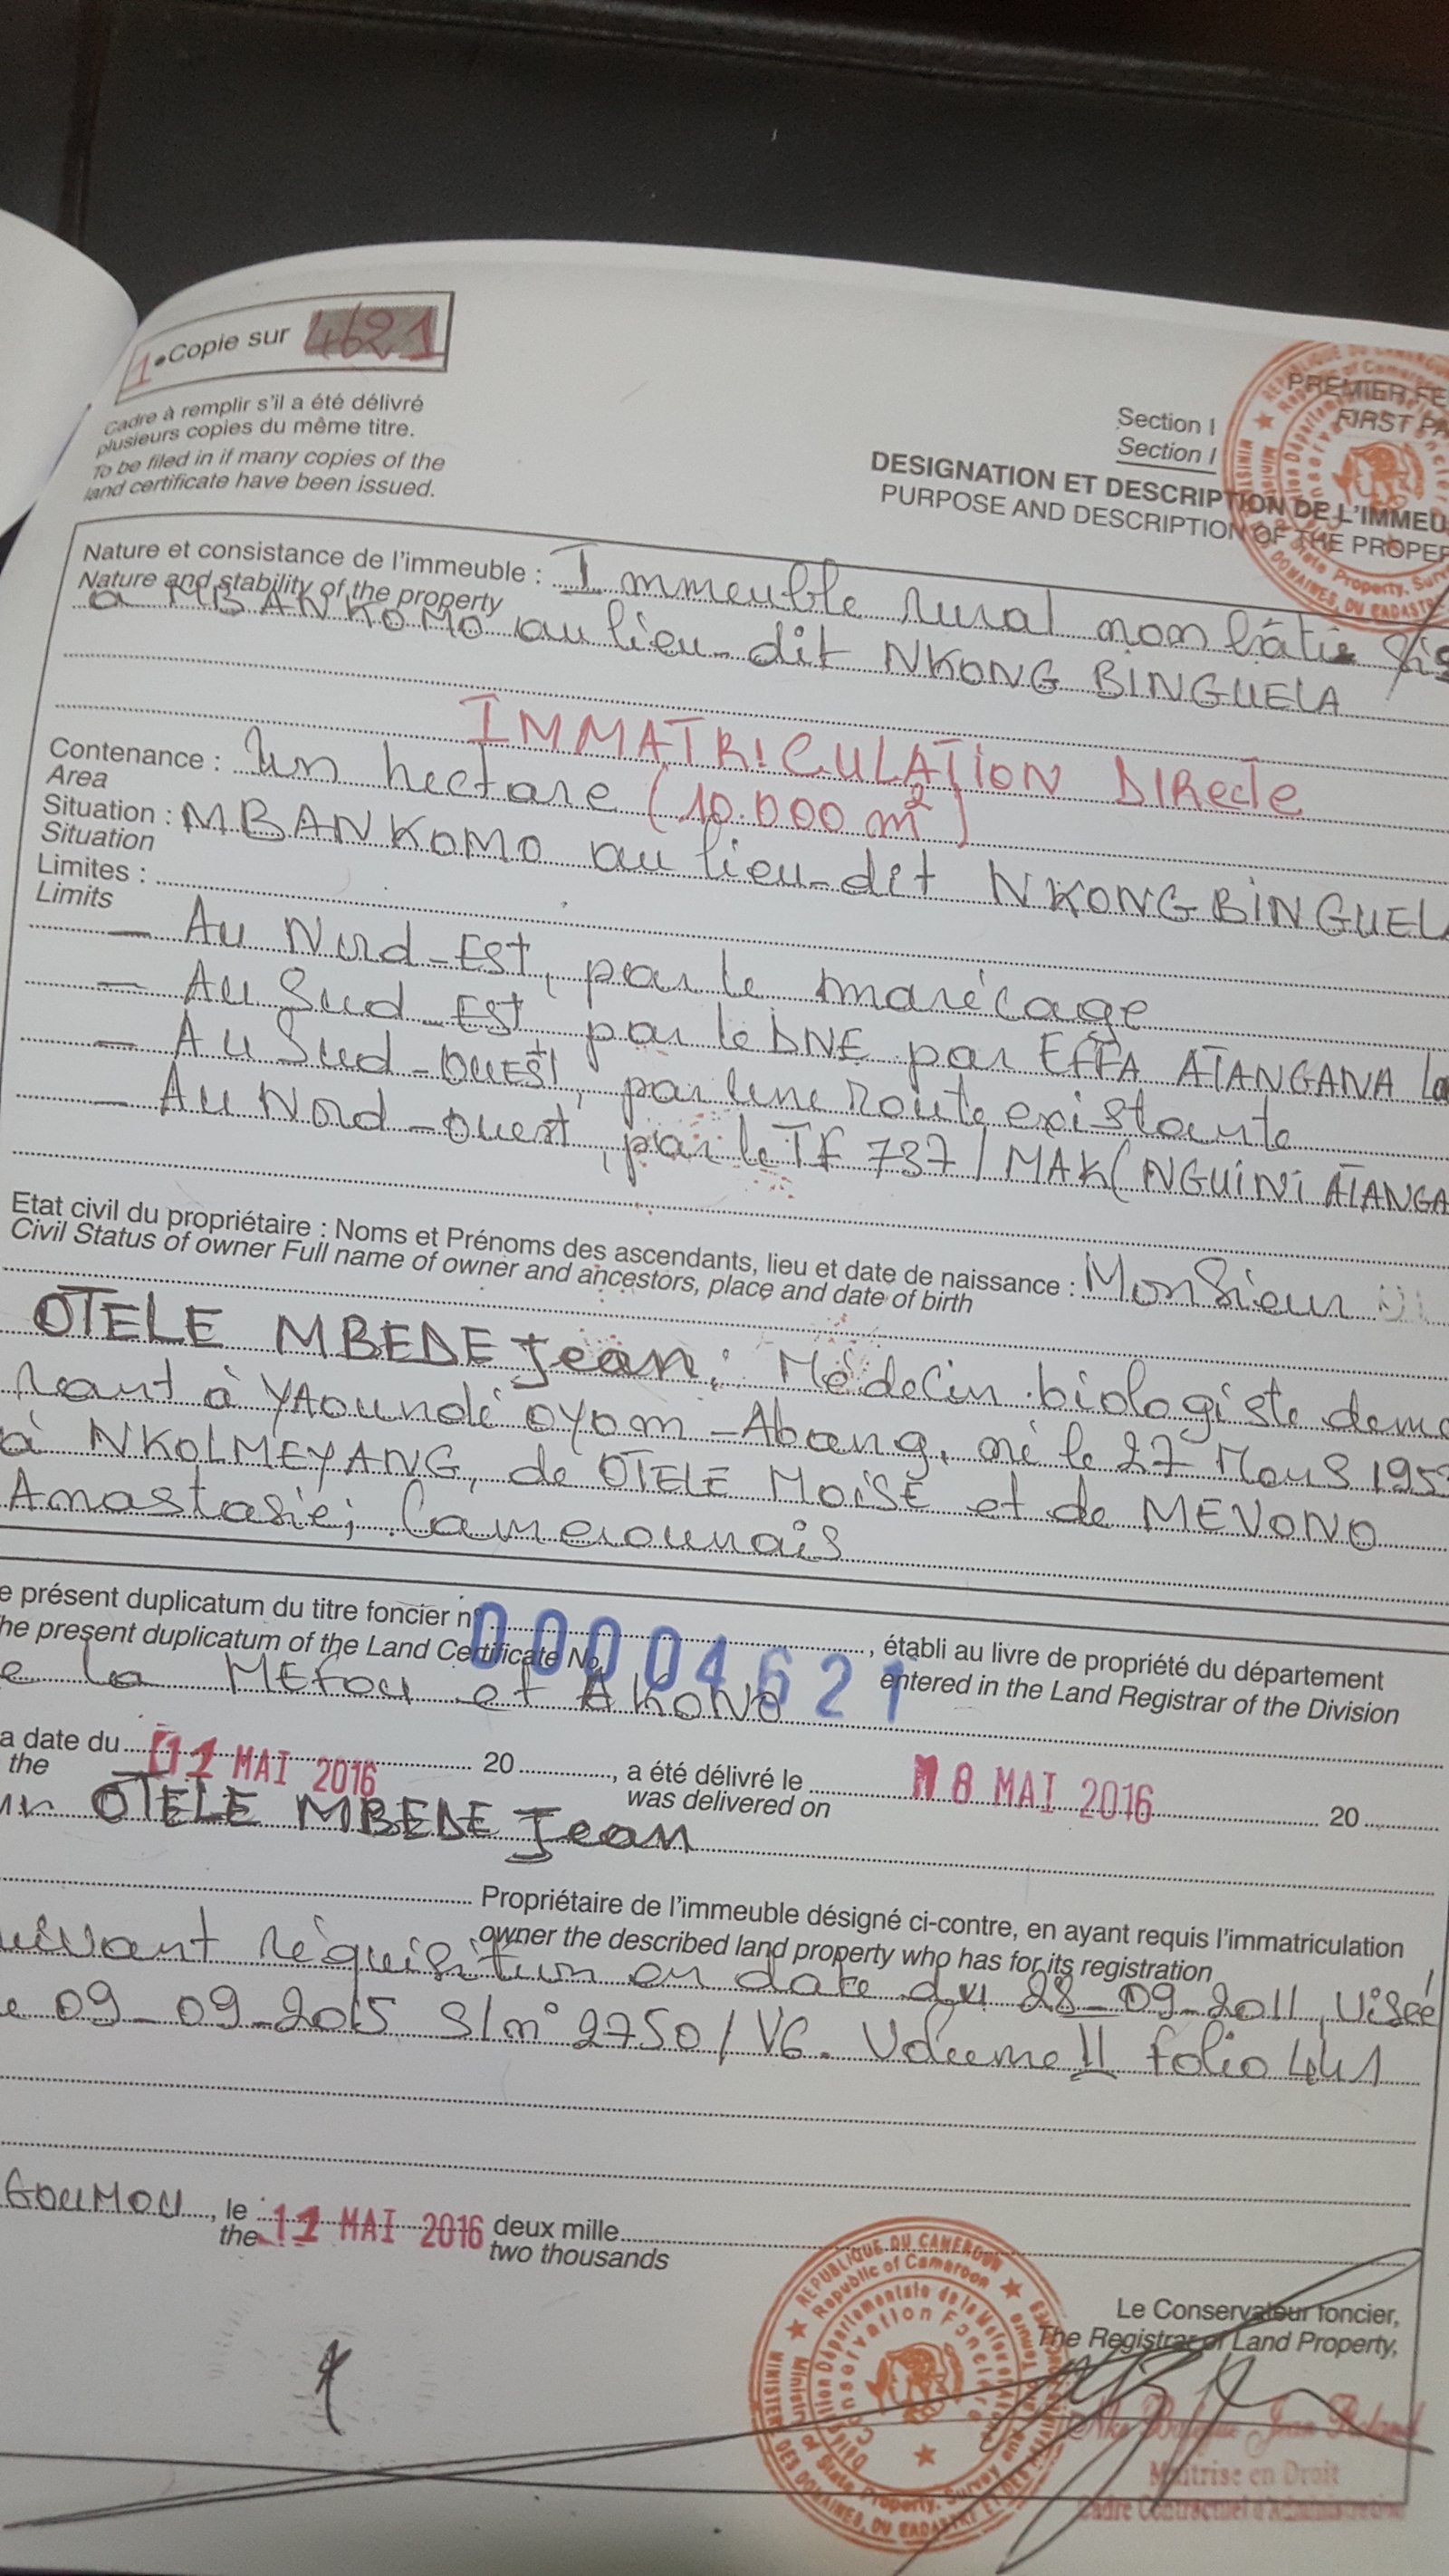 1 Copie sur 4621
Cadre à remplir s'il a été délivré
plusieurs copies du même titre.
To be filed in if many copies of the
land certificate have been issued.
PREMIER FE
FIRST PA
Section I
Section I
DESIGNATION ET DESCRIPTION DE L'IMMEU
PURPOSE AND DESCRIPTION OF THE PROPER
Nature et consistance de l'immeuble : Immeuble rural non bâtie sis
Nature and stability of the property
à MBANKOMO au lieu-dit NKONG BINGUELA
IMMATRICULATION DIRecTe
Contenance : Un hectare (10.000 m²)
Area
Situation : MBANKOMO au lieu-dit NKONGBINGUELA
Situation
Limites :
Limits
— Au Nord-Est, par le marécage
— Au Sud-Est par le DNE par EFFA ATANGANA
— Au Sud-OUEST, par une Route existante
— Au Nord-ouest, par le TF 737/MAK(NGUINI ATANGA
Etat civil du propriétaire : Noms et Prénoms des ascendants, lieu et date de naissance : Monsieur
Civil Status of owner Full name of owner and ancestors, place and date of birth
OTELE MBEDE Jean; Médecin biologiste demeu
rant à YAoundé oyom-Abang, né le 27 Mars 195
à NKOLMEYANG, de OTELE MoïSE et de MEVONO
Anastasie; Camerounais
e présent duplicatum du titre foncier n° 00004621, établi au livre de propriété du département
he present duplicatum of the Land Certificate No. entered in the Land Registrar of the Division
e La MEFou et AKoNo
a date du 11 MAI 2016 20, a été délivré le 18 MAI 2016 20
the was delivered on
OTELE MBEDE Jean
Propriétaire de l'immeuble désigné ci-contre, en ayant requis l'immatriculation
owner the described land property who has for its registration
uivant réquisition en date du 28-09-2011, Visée
e 09-09-2015 S/n° 2750/V6. Volume II folio 441
GOUMOU, le 11 MAI 2016 deux mille
the two thousands
Le Conservateur foncier,
The Registrar of Land Property,
REPUBLIQUE DU CAMEROUN
Republic of Cameroon
Conservation Foncière
Maîtrise en Droit
Cadre Contractuel d'Administration